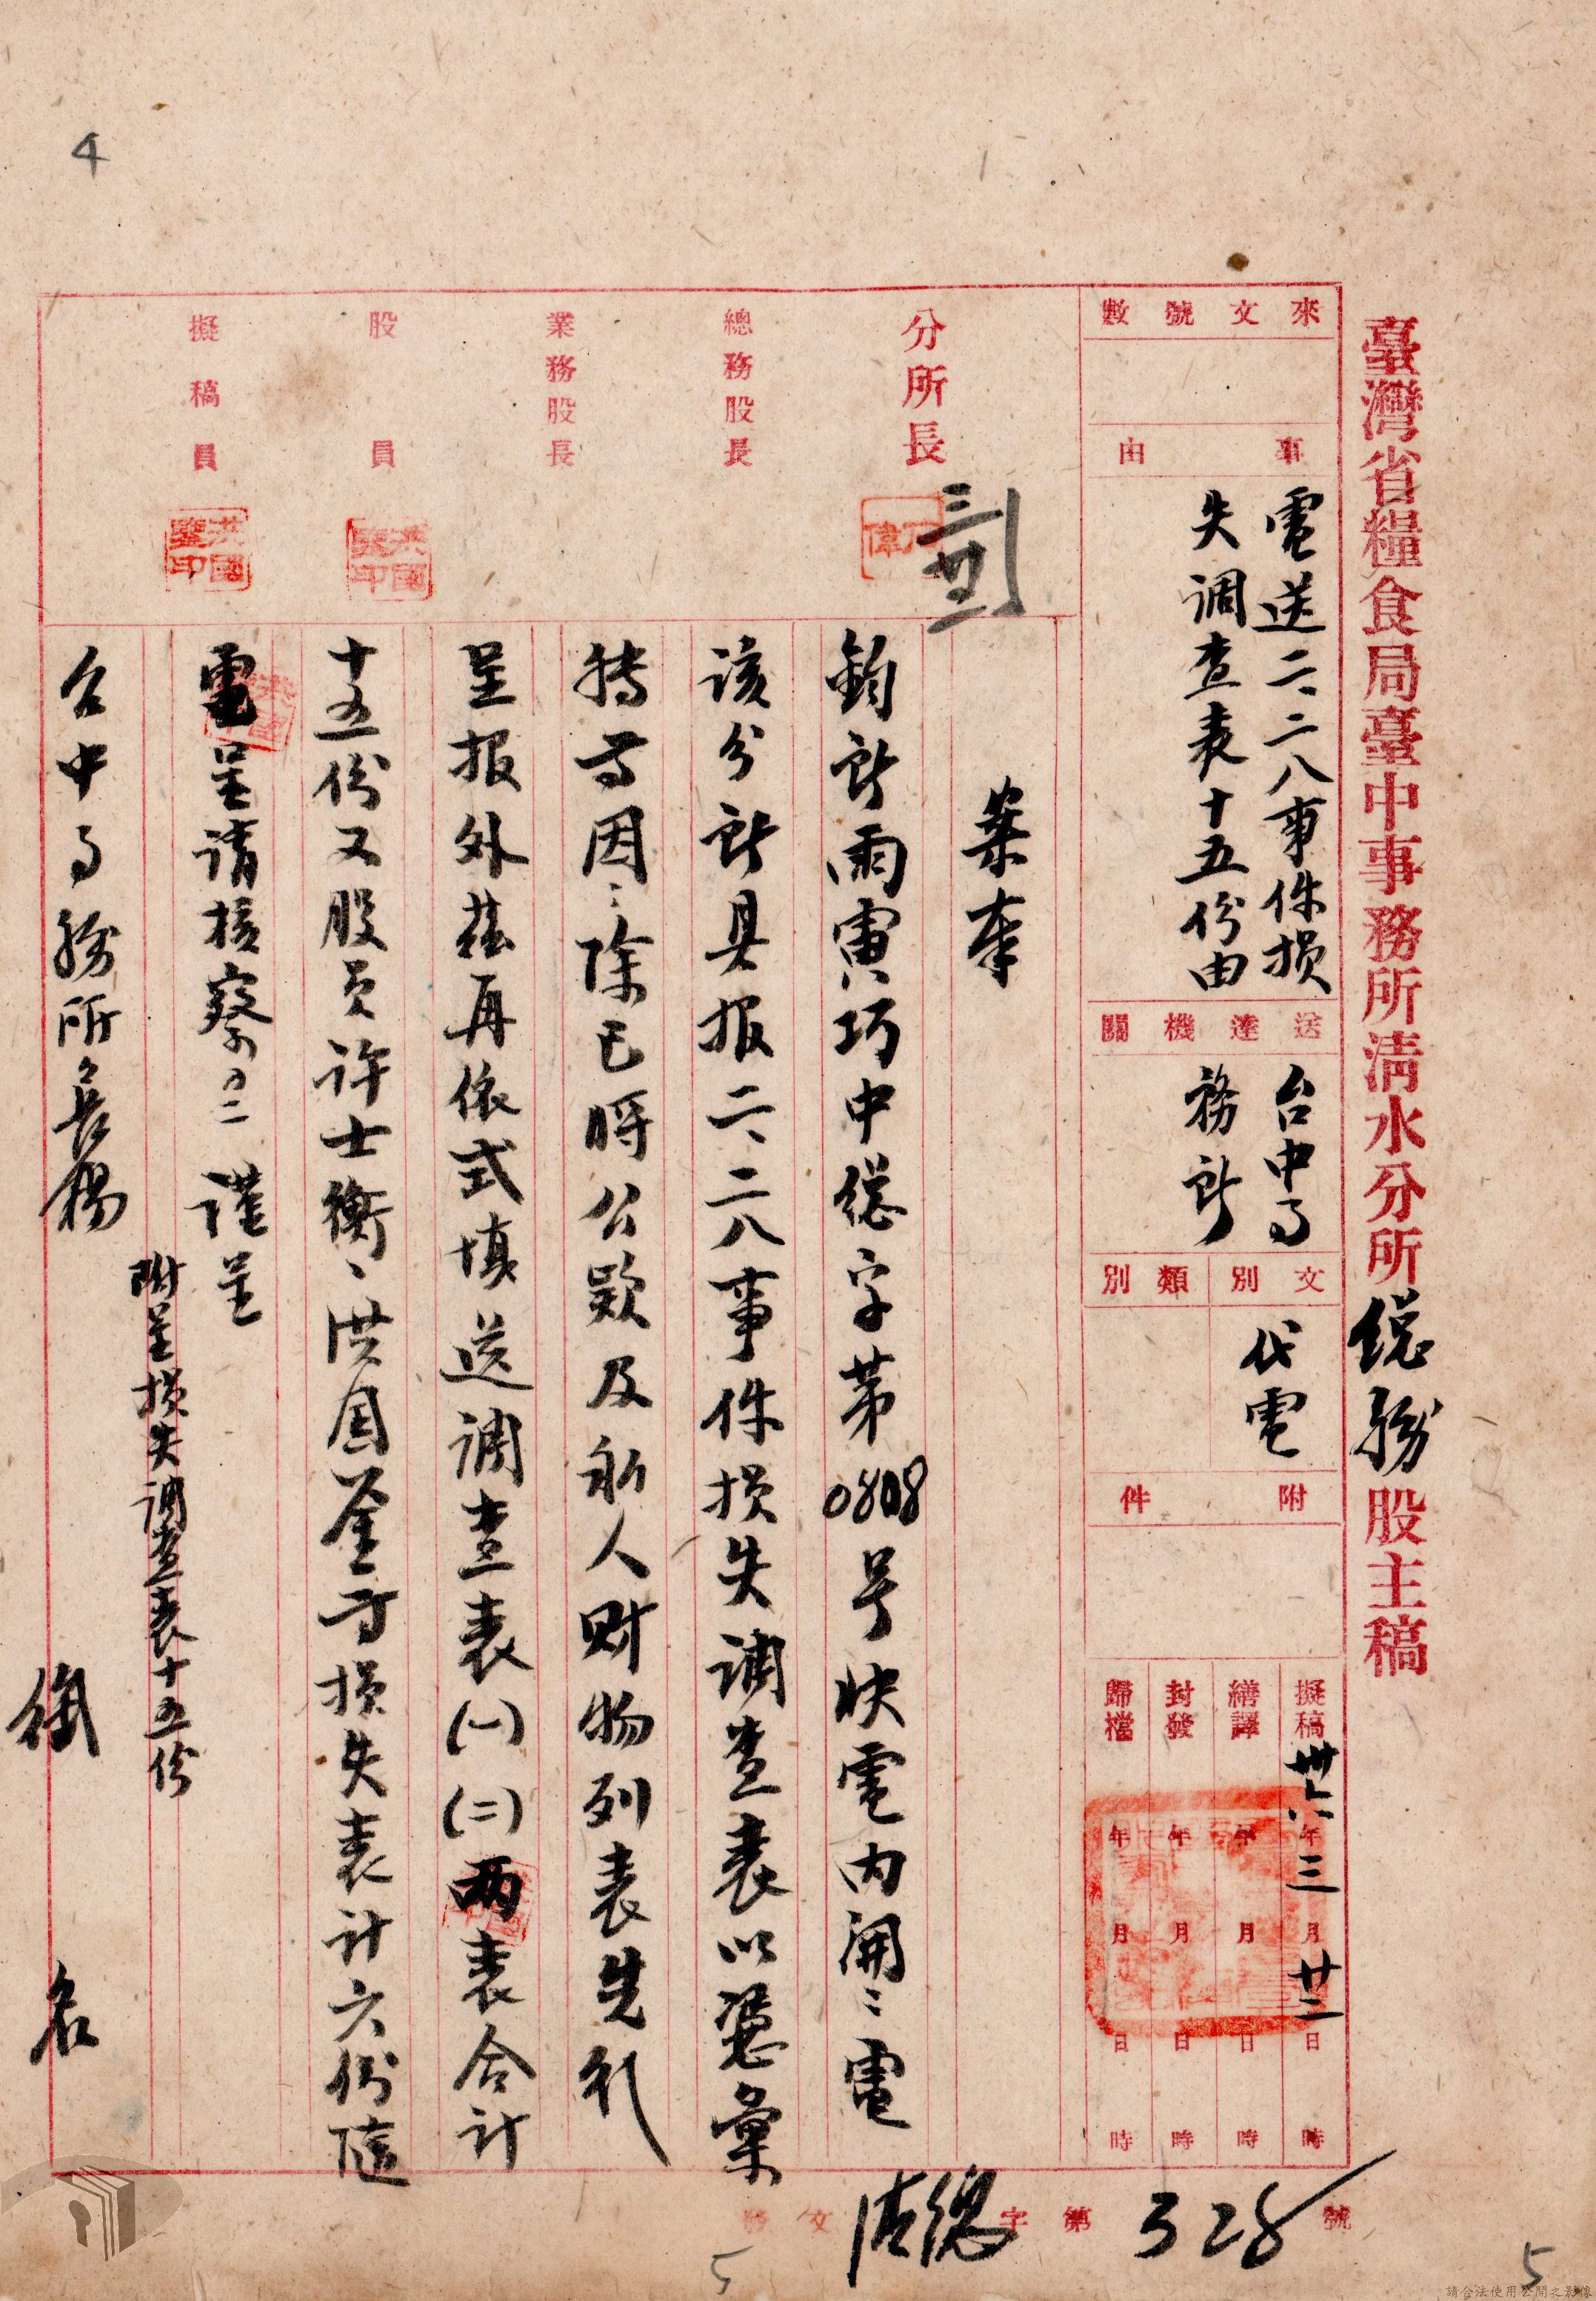 臺灣省糧食局臺中事務所清水分所總務股主稿
來文號數
事由
電送二、二八事件損
失調查表十五份由
送達機關
台中事
務所
文別
類別
代電
附件
擬稿 卅六年三月廿二日 時
繕譯 年月日時
封發 年月日時
歸檔 年月日時
發文 清總字第328號
分所長
總務股長
業務股長
股員
擬稿員
案奉
鈞所兩寅巧中總字第0808号快電內開:電
該分所具报二、二八事件損失調查表以憑彙
轉等因:除已將公款及私人財物列表先行
呈报外茲再依式填送調查表(一)(二)两表合計
十五份又股員許士衡、洪国鑾等損失表計六份隨
電呈請核察 謹呈
台中事務所長楊
附呈損失調查表十五份
銜 名
4
5
5
請合法使用公開之影像